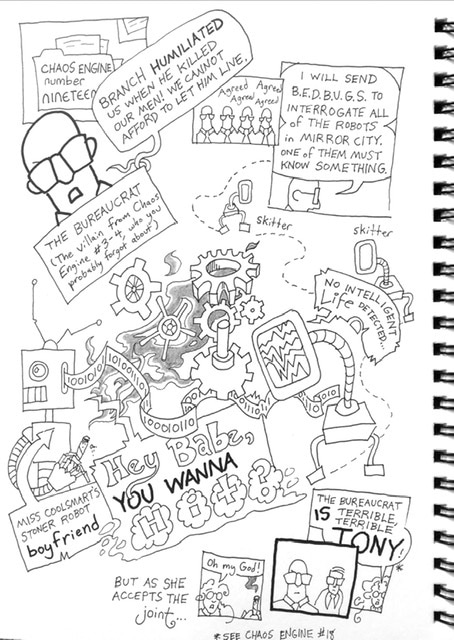 CHAOS ENGINE
number
NINETEEN
BRANCH HUMILIATED
US WHEN HE KILLED
OUR MEN! WE CANNOT
AFFORD TO LET HIM LIVE.
Agreed Agreed
Agreed
Agreed
I WILL SEND
B.E.D.B.U.G.S. TO
INTERROGATE ALL
OF THE ROBOTS
in MIRROR CITY.
ONE OF THEM MUST
KNOW SOMETHING.
THE BUREAUCRAT
(The villain from Chaos
Engine #3-4 who you
probably forgot about)
skitter
skitter
NO INTELLIGENT
Life DETECTED...
1001010
10100110
10001010
Hey Babe,
YOU WANNA
Hit?
MISS COOLSMART'S
STONER ROBOT
boyfriend
BUT AS SHE
ACCEPTS THE
joint...
Oh my God!
THE BUREAUCRAT
IS TERRIBLE,
TERRIBLE
TONY!
*
* SEE CHAOS ENGINE #18